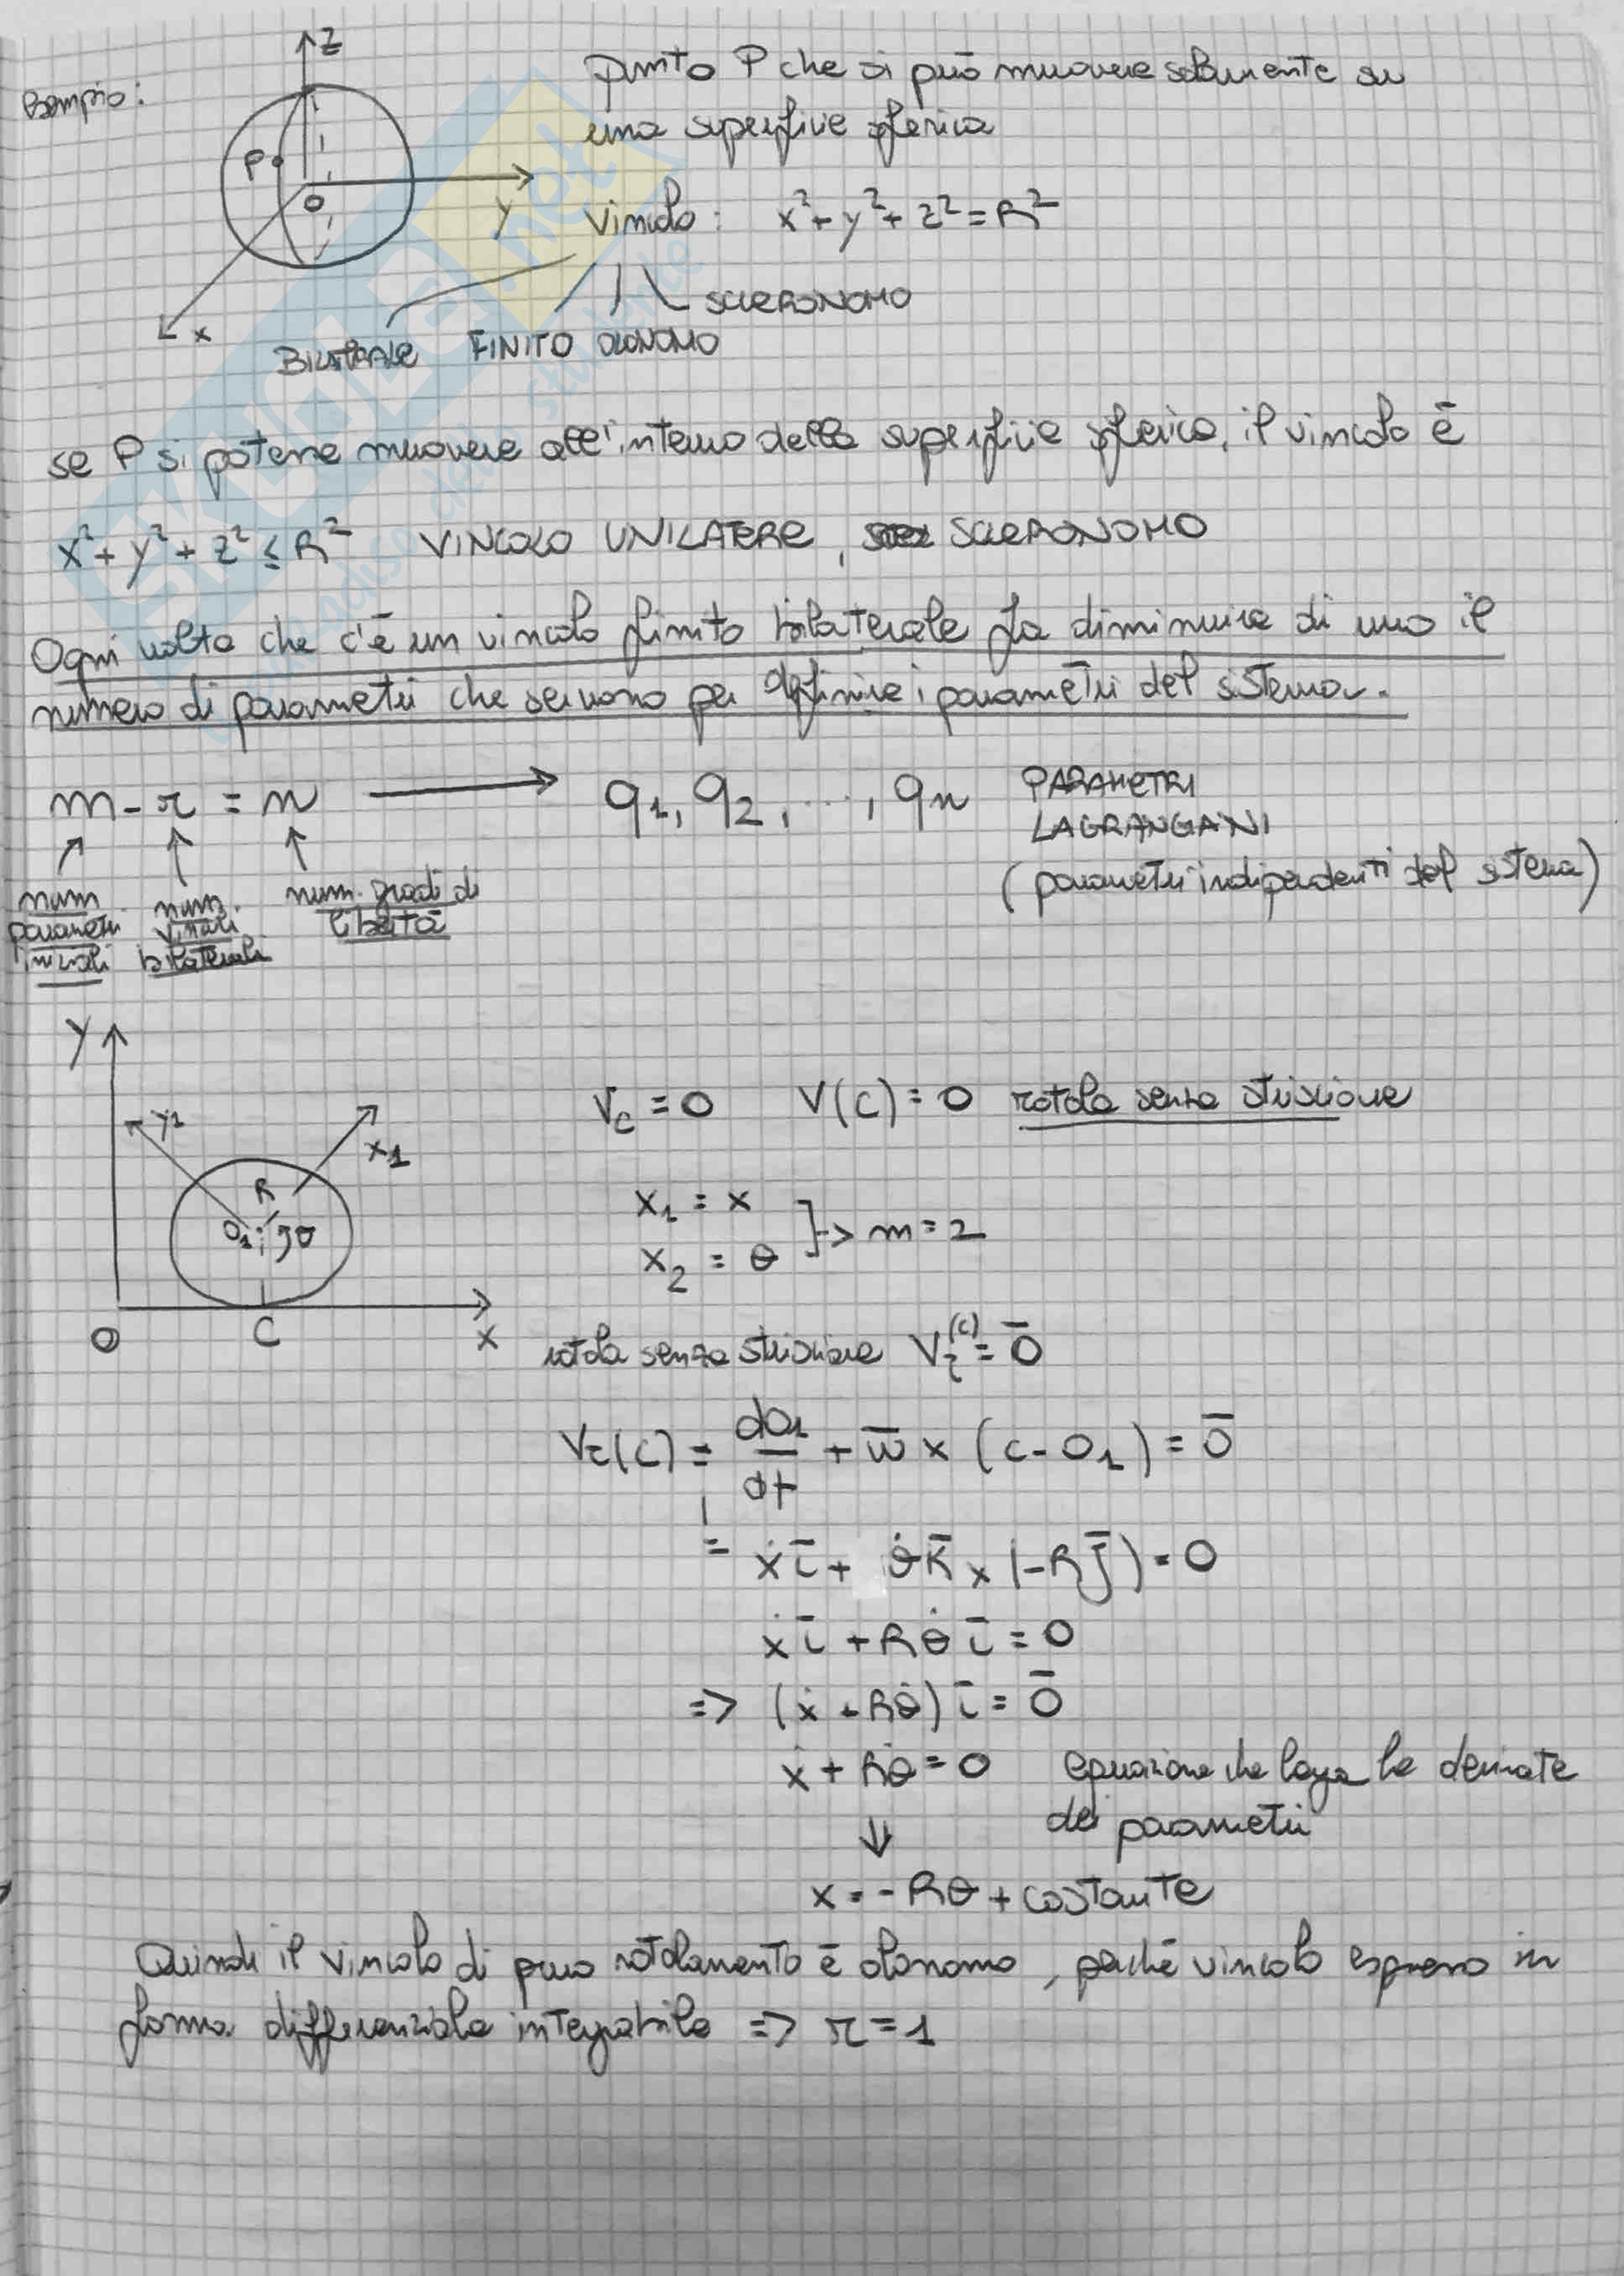 Esempio:
z
P
O
y
x
punto P che si può muovere solamente su
una superficie sferica
Vincolo: x²+y²+z²=R²
SCLERONOMO
BILATERALE FINITO OLONOMO
se P si potesse muovere all'interno della superficie sferica, il vincolo è
x²+y²+z² ≤ R² VINCOLO UNILATERE, SCLERONOMO
Ogni volta che c'è un vincolo finito bilaterale fa diminuire di uno il
numero di parametri che servono per definire i parametri del sistema.
m - r = n → q₁, q₂, ..., qₙ PARAMETRI
LAGRANGIANI
(parametri indipendenti del sistema)
num parametri iniziali
num. vincoli bilaterali
num. gradi di libertà
y
y₁
x₁
R
O₁ θ
O C x
V_C = 0 V(C) = 0 rotola senza strisciare
x₁ = x
x₂ = θ
} → m = 2
rotola senza strisciare V_τ^(C) = 0̄
V_τ(C) = dO₁/dt + ω̄ × (C - O₁) = 0̄
= ẋ ī + θ̇ k̄ × (-R j̄) = 0
ẋ ī + R θ̇ ī = 0
=> (ẋ + Rθ̇) ī = 0̄
ẋ + Rθ̇ = 0 equazione che lega le derivate
dei parametri
⇓
x = - Rθ + costante
Quindi il vincolo di puro rotolamento è olonomo, perché vincolo espresso in
forma differenziale integrabile => r = 1
SKUOLA.net